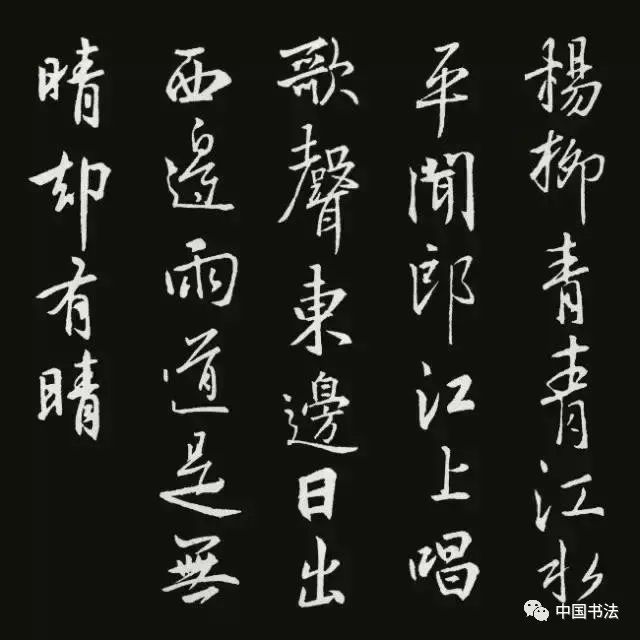 楊柳青青江水
平聞郎江上唱
歌聲東邊日出
西邊雨道是無
晴却有晴
中国书法